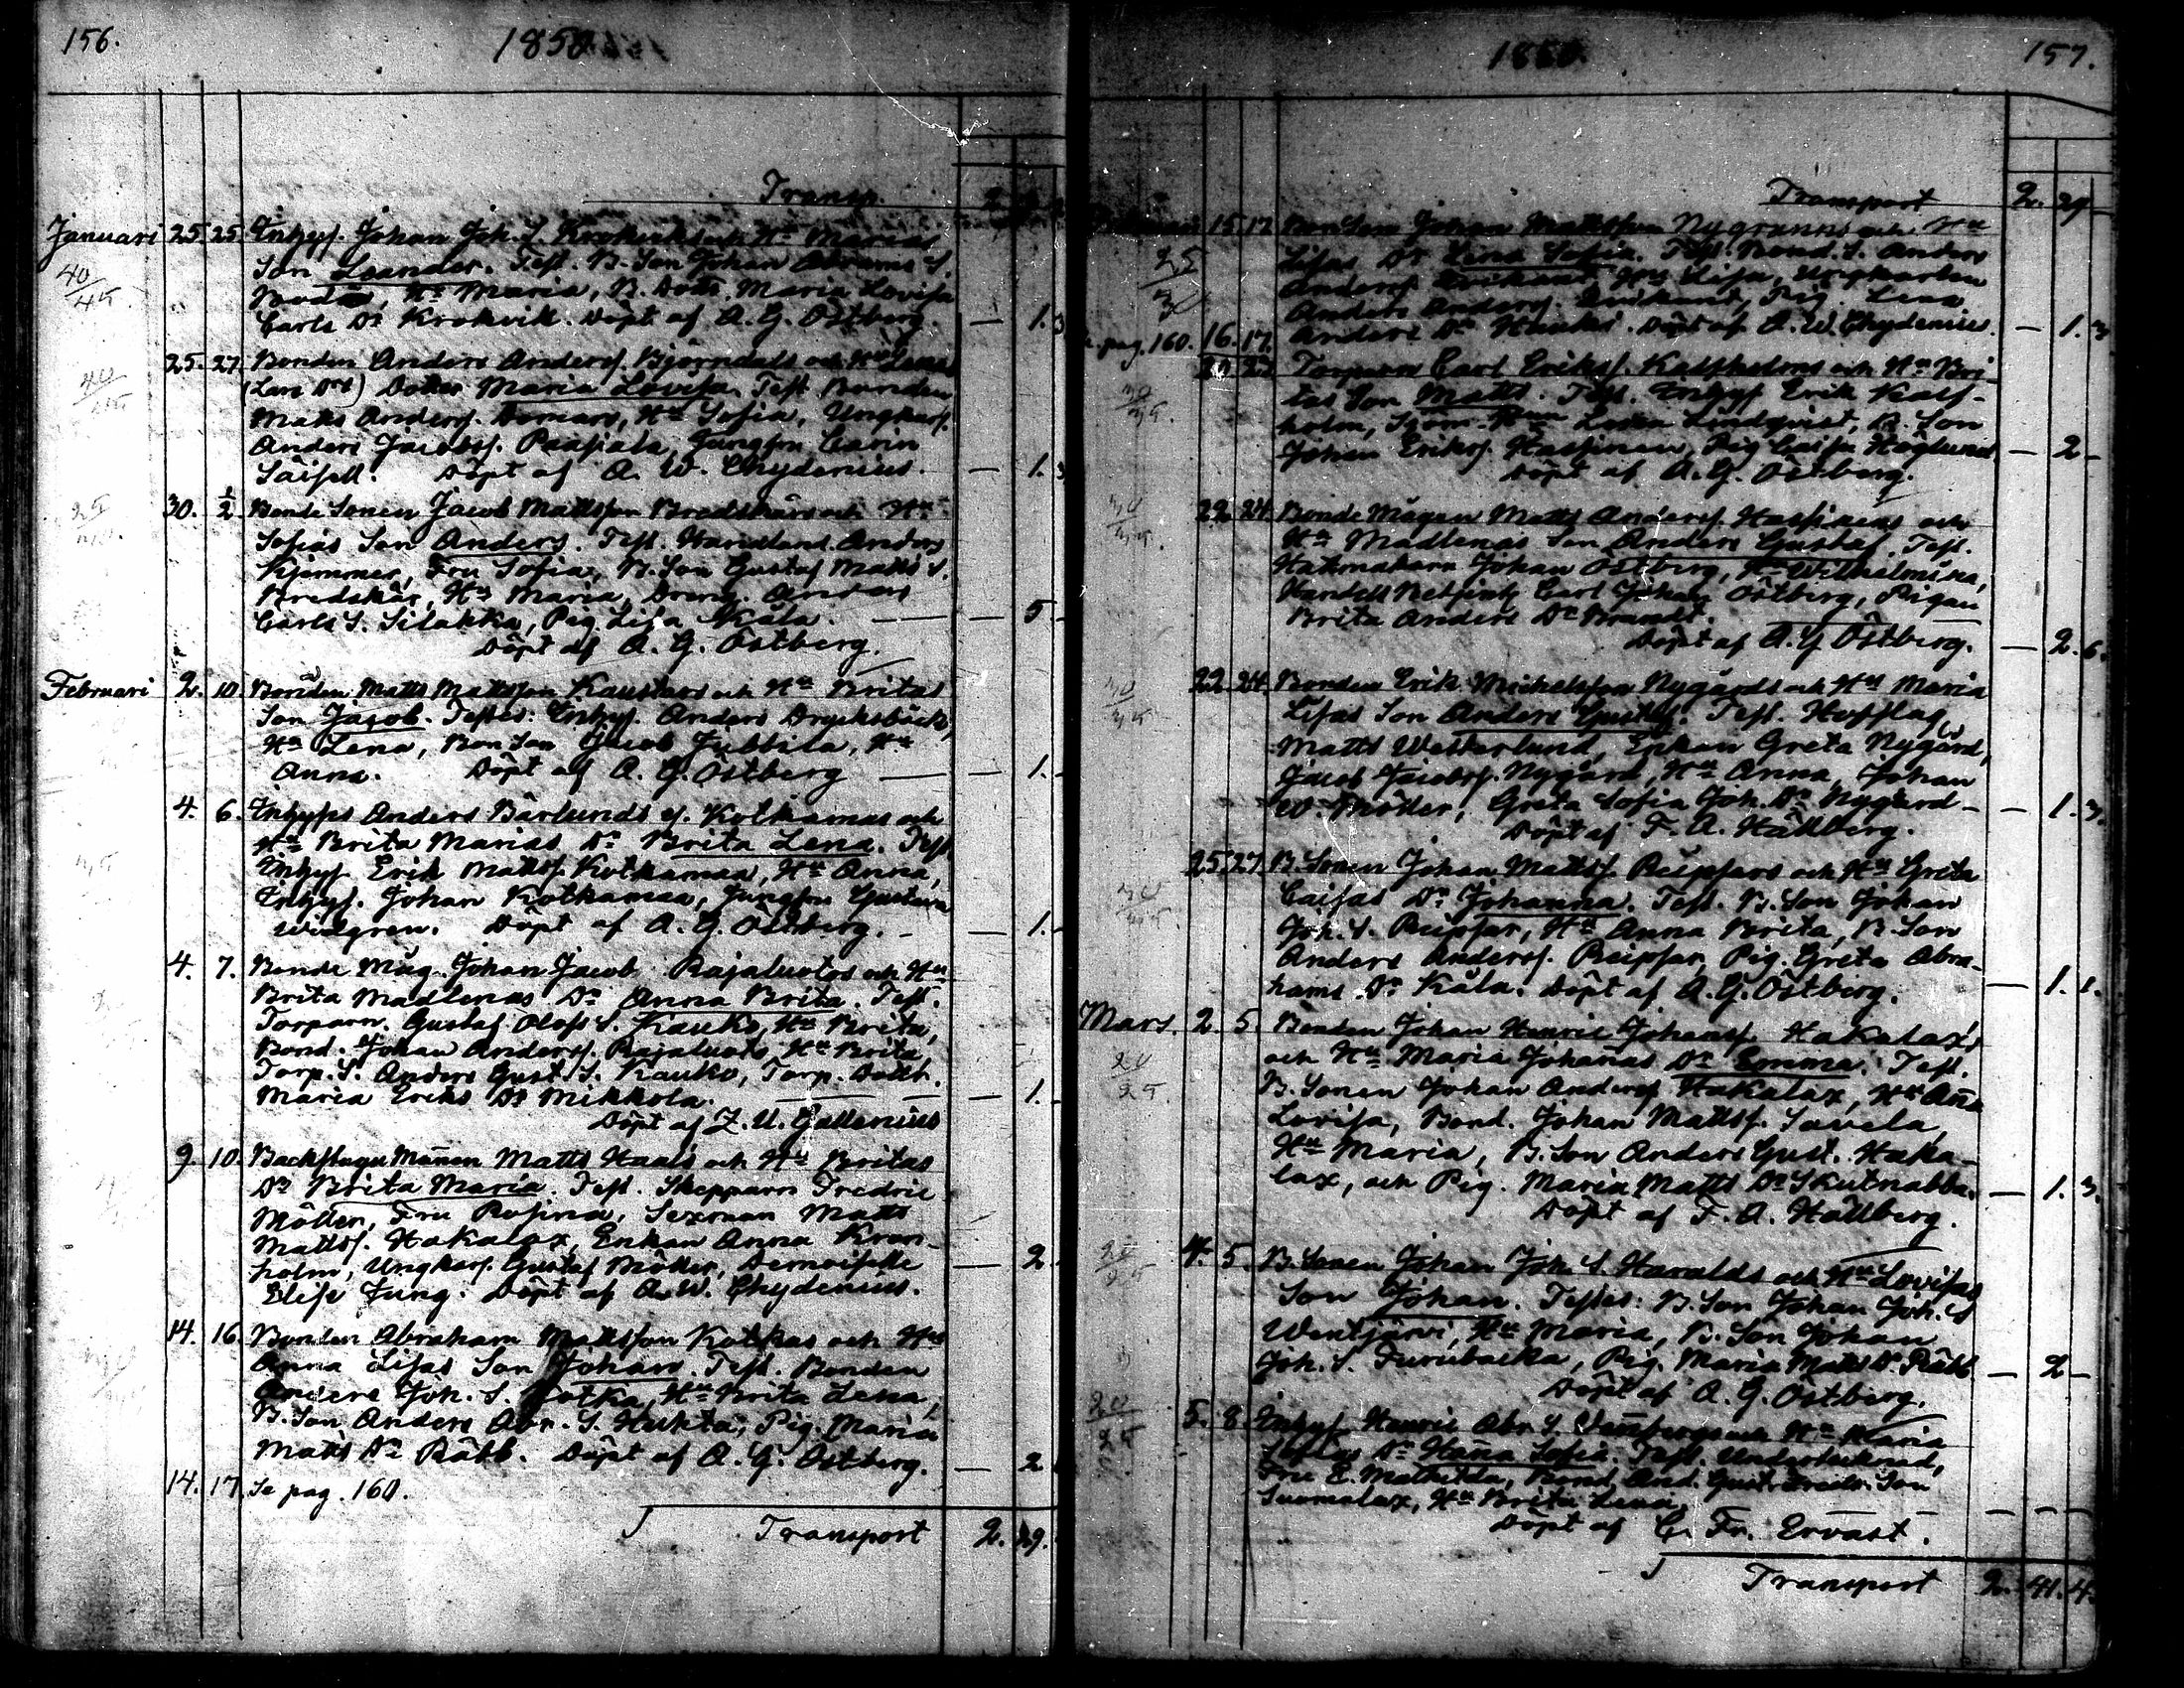 156.
1850
Transp.
Januari 25. 25. Inhys. Johan Joh. S. Krokviks och Hu Marias
40/45 Son Leander. Test. B. Son Johan Abrams S.
Hu Maria, B. Dott. Maria Lovisa
Carls Dr Krokvik. Döpt af A. G. Östberg. — 1. 3
25. 27. Bonden Anders Anderss. Björndahls och Hu Lenas
40/45 Dotter Maria Lovisa. Test. Bonden
Matts Anderss. Domars, Hu Sofia, Ungkarl.
Anders Jacobss. Jungfru Carin
Döpt af A. W. Chydenius. — 1. 3
30. 1/2 Bonde Sonen Jacob Mattsson Bredskärs och Hu
25 Sofias Son Anders. Test. Handland. Anders
Kjemmer, Fru Sofia, B. Son Gustaf Matts S.
Bredskär, Hu Maria, Dreng. Anders
Carls S. Silakka, Pig. Lisa Kåla. — 5
Döpt af A. G. Östberg.
Februari 2. 10. Bonden Matts Mattsson Kaustars och Hu Britas
Son Jacob. Testes: Inhys. Anders Drycksbäck,
Hu Lena, Bon Son Jacob Jubbila, Hu
Anna. Döpt af A. G. Östberg — 1.
4. 6. Inhyss Anders Bärlunds ef. Kotkamas och
Hu Brita Marias Dr Brita Lena. Test.
Inhys. Erik Matts. Kotkamaa, Hu Anna,
Inhys. Johan Kotkamaa, Jungfru Gustava
Widgren. Döpt af A. G. Östberg. — 1.
4. 7. Bonde Måg. Johan Jacob Rajaluotos och Hu
Brita Madlenas Dr Anna Brita. Test.
Torparn. Gustaf Olofs S. Kauko, Hu Brita,
Bond. Johan Anderss. Rajaluoto Hu Brita,
Torp. S. Anders Gust. S. Kauko, Torp. Dottr.
Maria Eriks Dr Mikkola. — 1.
Döpt af Z. U. Gallenius
9. 10. Backstugu Mannen Matts Haals och Hu Britas
Dr Brita Maria. Test. Skepparn Fredric
Möller, Fru Rosina, Sexman Matts
Mattss. Hakalax, Enkan Anna Kron-
holm, Ungkarl. Gustaf Möller, Demoiselle — 2.
Elise Jung. Döpt af A. W. Chydenius.
14. 16. Bonden Abraham Mattsson Kotkas och Hu
Anna Lisas Son Johan. Test. Bonden
Anders Joh. S. Kotka, Hu Brita Lena,
B. Son Anders Abr. S. Huhta, Pig. Maria
Matts Dr Räbb. Döpt af A. G. Östberg. — 2
14. 17. Se pag. 160.
Transport 2. 29.
1850.
157.
Transport 2. 29
15 17 Bon Son Johan Mattsson Nygrann och Hu
25/30 Lisas Dr Lena Sofia. Test. Bond. S. Anders
Anderss. Hu Lisa, Ungkarlen
Anders Anderss. Pig. Lena
Anders Dr Döpt af A. W. Chydenius. — 1. 3
pag. 160. 16. 17.
20 22 Torparn Carl Erikss. Kalsholms och Hu Bri-
30/35 tas Son Matts. Test. Inhys Erik Kals-
holm, Lena Lindqvist, B. Son
Johan Erikss. Hassinen, Pig Caisa Höglund — 2 -
Döpt af A. G. Östberg.
22 24 Bonde Mågen Matts Anderss. Hassinens och
Hu Madlenas Son Anders Gustaf. Test.
Hattmakarn Johan Östberg, Hu Wilhelmina,
Handels Betjent Carl Johan Östberg, Pigan
Brita Anders Dr Brandt.
Döpt af A. G. Östberg. — 2. 6.
22 24 Bonden Erik Michelsson Nygårds och Hu Maria
Lisas Son Anders Gustaf. Test.
Matts Westerlund, Enkan Greta Nygård,
Jacob Jacobss. Nygård, Hu Anna, Johan
W. Möller, Greta Sofia Joh. Dr Nygård — 1. 3.
Döpt af F. A. Hällberg.
25 27 B. Sonen Johan Mattss. Reipsars och Hu Greta
Caisas Dr Johanna. Test. B. Son Johan
Joh. S. Reipsar, Hu Anna Brita, B. Son
Anders Anderss. Reipsar, Pig. Greta Abra-
hams Dr Kåla. Döpt af A. G. Östberg. — 1. 1.
Mars. 2. 5. Bonden Johan Henric Johanss. Hakalax's
20/25 och Hu Maria Johanas Dr Emma. Test.
B. Sonen Johan Anderss Hakalax, Hu Ana
Lovisa, Bond. Johan Mattss. Savela,
Hu Maria, B. Son Anders Gust. Haka-
lax, och Pig. Maria Matts Dr Skutnabba. — 1. 3.
Döpt af F. A. Hällberg.
4. 5. B. Sonen Johan Joh. S. Haralds och Hu Lovisas
20/25 Son Johan. Testes: B. Son Johan Joh. S
Wentjärvi, Hu Maria, B. Son Johan
Joh. S. Furubacka, Pig. Maria Matts Dr Räbb — 2 -
Döpt af A. G. Östberg.
5. 8. Inhys. Henric Abr. S. och Hu Maria
20/25 Sofias Dr Hana Sofia. Test. Undertecknad,
Fru E. Mathilda, Bond. And. Gust. Fredr. Son
Suomalax, Hu Brita Lena. — — —
Döpt af C. Fr. Ervast.
Transport 2. 41. 4.